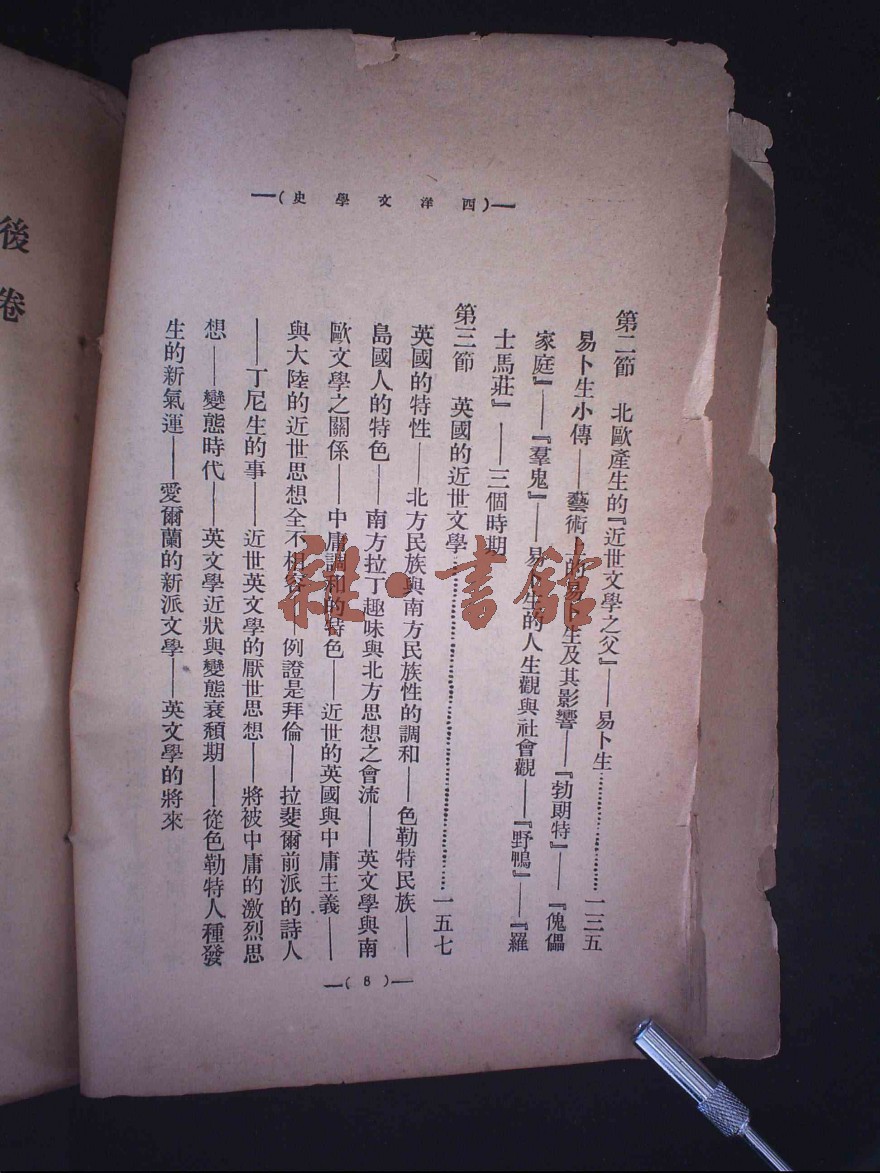 西洋文學史
第二節 北歐產生的『近世文學之父』——易卜生…………一三五
易卜生小傳——藝術上的易卜生及其影響——『勃朗特』——『傀儡
家庭』——『羣鬼』——易卜生的人生觀與社會觀——『野鴨』——『羅
士馬莊』——三個時期
第三節 英國的近世文學…………一五七
英國的特性——北方民族與南方民族性的調和——色勒特民族——
島國人的特色——南方拉丁趣味與北方思想之會流——英文學與南
歐文學之關係——中庸調和的特色——近世的英國與中庸主義——
與大陸的近世思想全不相容——例證是拜倫——拉斐爾前派的詩人
——丁尼生的事——近世英文學的厭世思想——將被中庸的激烈思
想——變態時代——英文學近狀與變態衰頹期——從色勒特人種發
生的新氣運——愛爾蘭的新派文學——英文學的將來
(8)
後卷
雜·書館